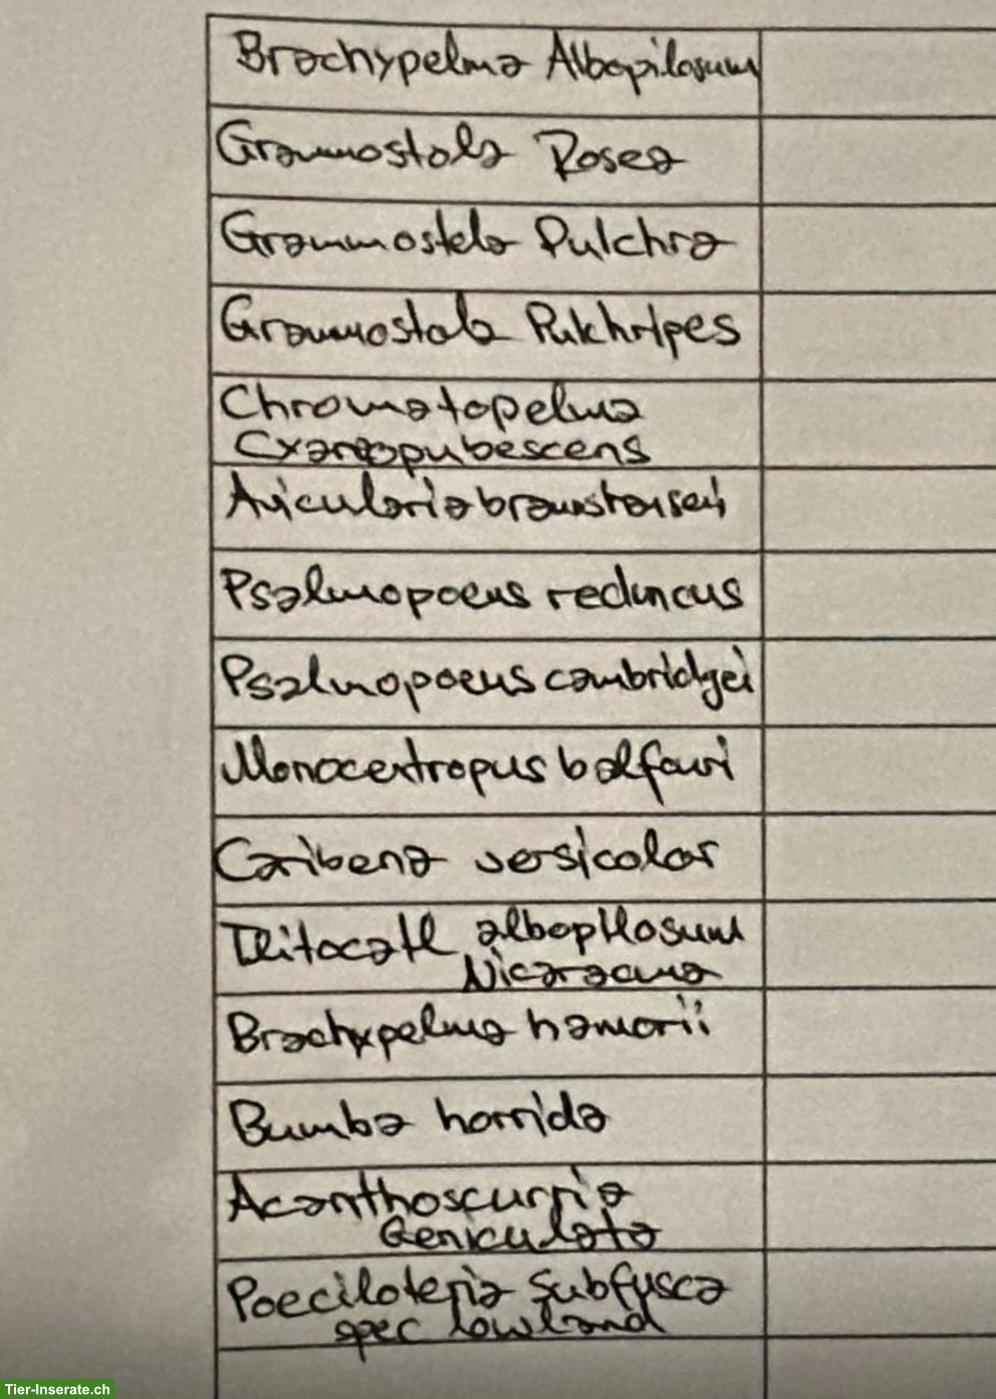 Brachypelma Albopilosum
Grammostola Rosea
Grammostola Pulchra
Grammostola Pulchripes
Chromatopelma
Cyaneopubescens
Avicularia braunshausei
Psalmopoeus reduncus
Psalmopoeus cambridgei
Monocentropus balfouri
Caribena versicolor
Tlitocatl albopilosum
Nicaragua
Brachypelma hamorii
Bumba horrida
Acanthoscurria
Geniculata
Poecilotheria Subfusca
spec lowland
Tier-Inserate.ch